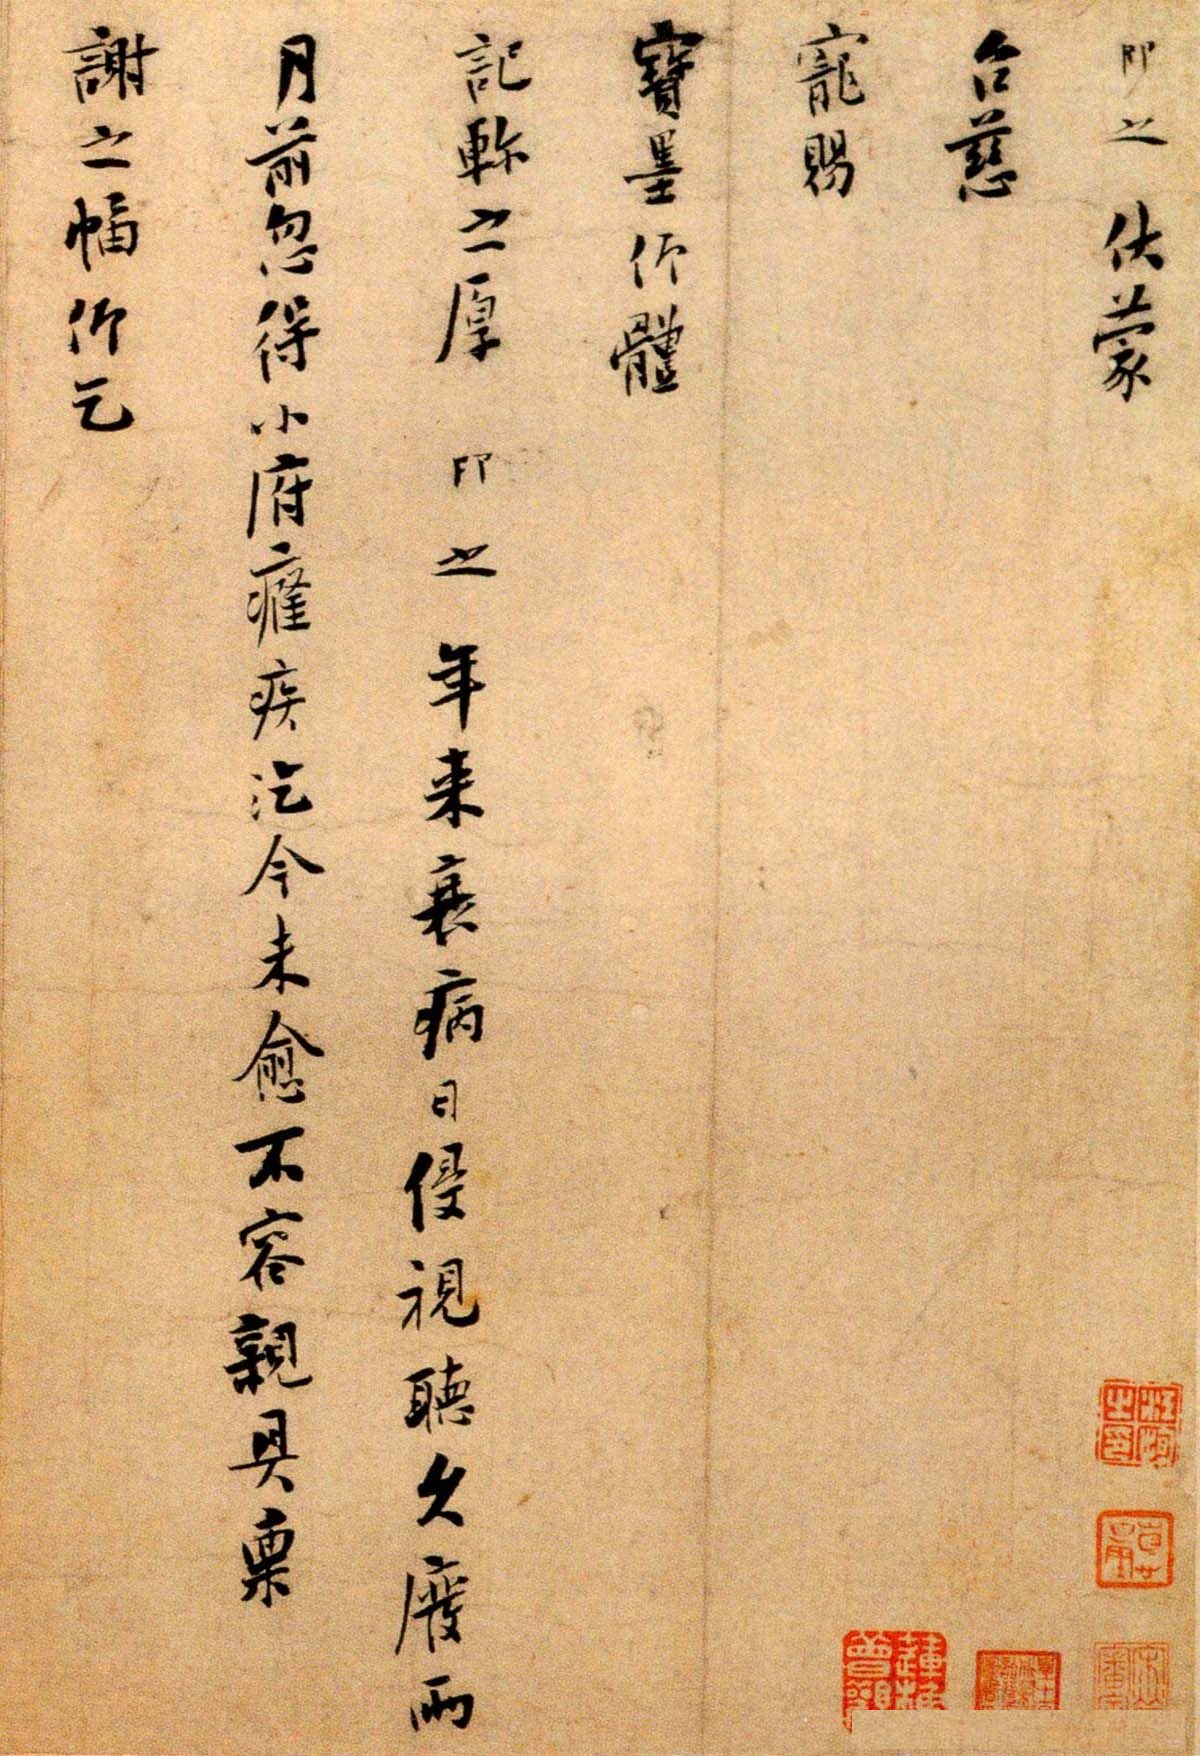 即之 伏蒙
台慈
寵賜
寶墨仰體
記軫之厚 即之 年来衰病日侵視聽久廢兩
月前忽得小府癰疾迄今未愈不容親具稟
謝之幅仰乞